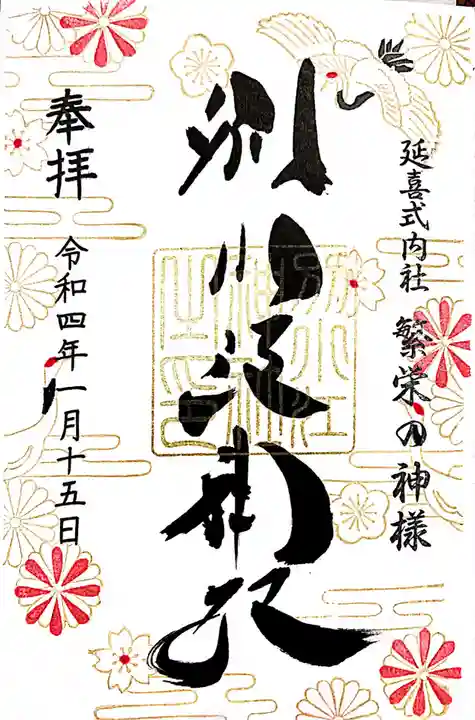 延喜式内社 繁栄の神様
別小江神社
別小江
神社
之印
奉拝
令和四年一月十五日